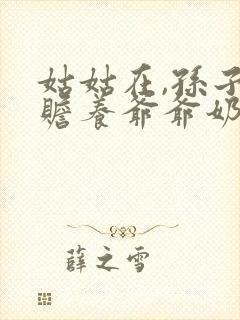 姑姑在,孫子
贍养爺爺奶
薛之雪